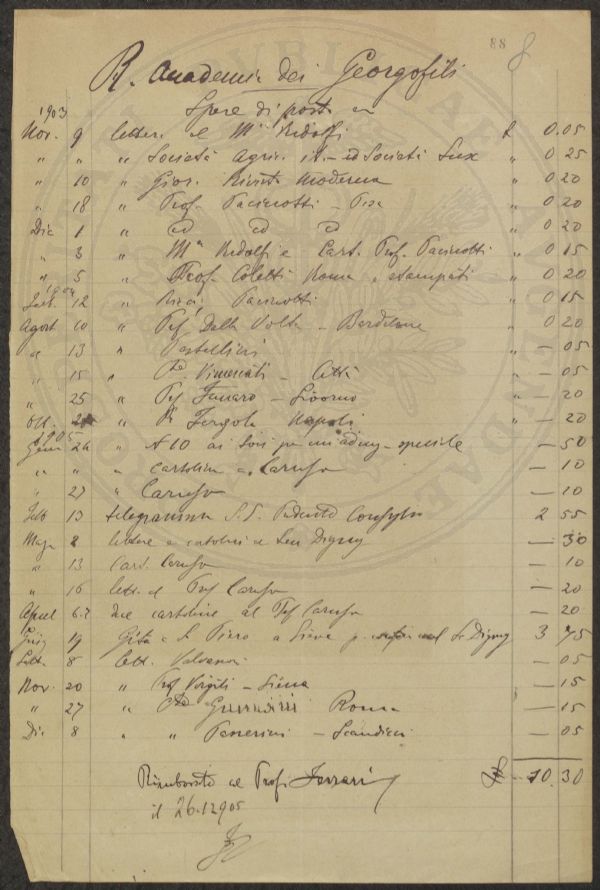 88 8
R. Accademia dei Georgofili
Spese di posta
1903
Nov. 9 lettera al M. Ridolfi £ 0.05
" " " Società Agric. it. – ed Società " 0 25
" 10 " Gior. Rivista Moderna " 0 20
" 18 " Prof. Pacinotti – Pisa " 0 20
Dic 1 " id id id " 0 20
" 3 " M. Ridolfi e Cart. Prof. Pacinotti " 0 15
" 5 " Prof. Coletti Roma e stampati – " 0 20
1904
12 " Pacinotti " 0 15
Agost 10 " Prof. Dalla Volta – " 0 20
" 13 " Pestellini " – 05
" 15 " Vimercati – Città " – 05
" 25 " Prof Funaro – Livorno " – 20
Ott. " Fergola Napoli " – 20
1905
Genn 26 " N 10 ai Soci per adunz. speciale – 50
" " " cartolina a Caruso – 10
" 27 " Caruso – 10
Feb 13 telegramma 2 55
Magg 2 lettere e cartolina a Digny – 30
" 13 Cart. Caruso – 10
" 16 lett. al Prof Caruso – 20
Aprile 6.7 due cartoline al Prof Caruso – 20
Giug 19 Gita a S. Piero a Sieve p. Digny 3 75
Sett. 8 lett. – 05
Nov. 20 " Prof Virgili – Siena – 15
" 27 " Roma – 15
Dic 8 " " Passerini – Scandicci – 05
Rimborsato al Prof. Ferrari £ 10.30
il 26.12905